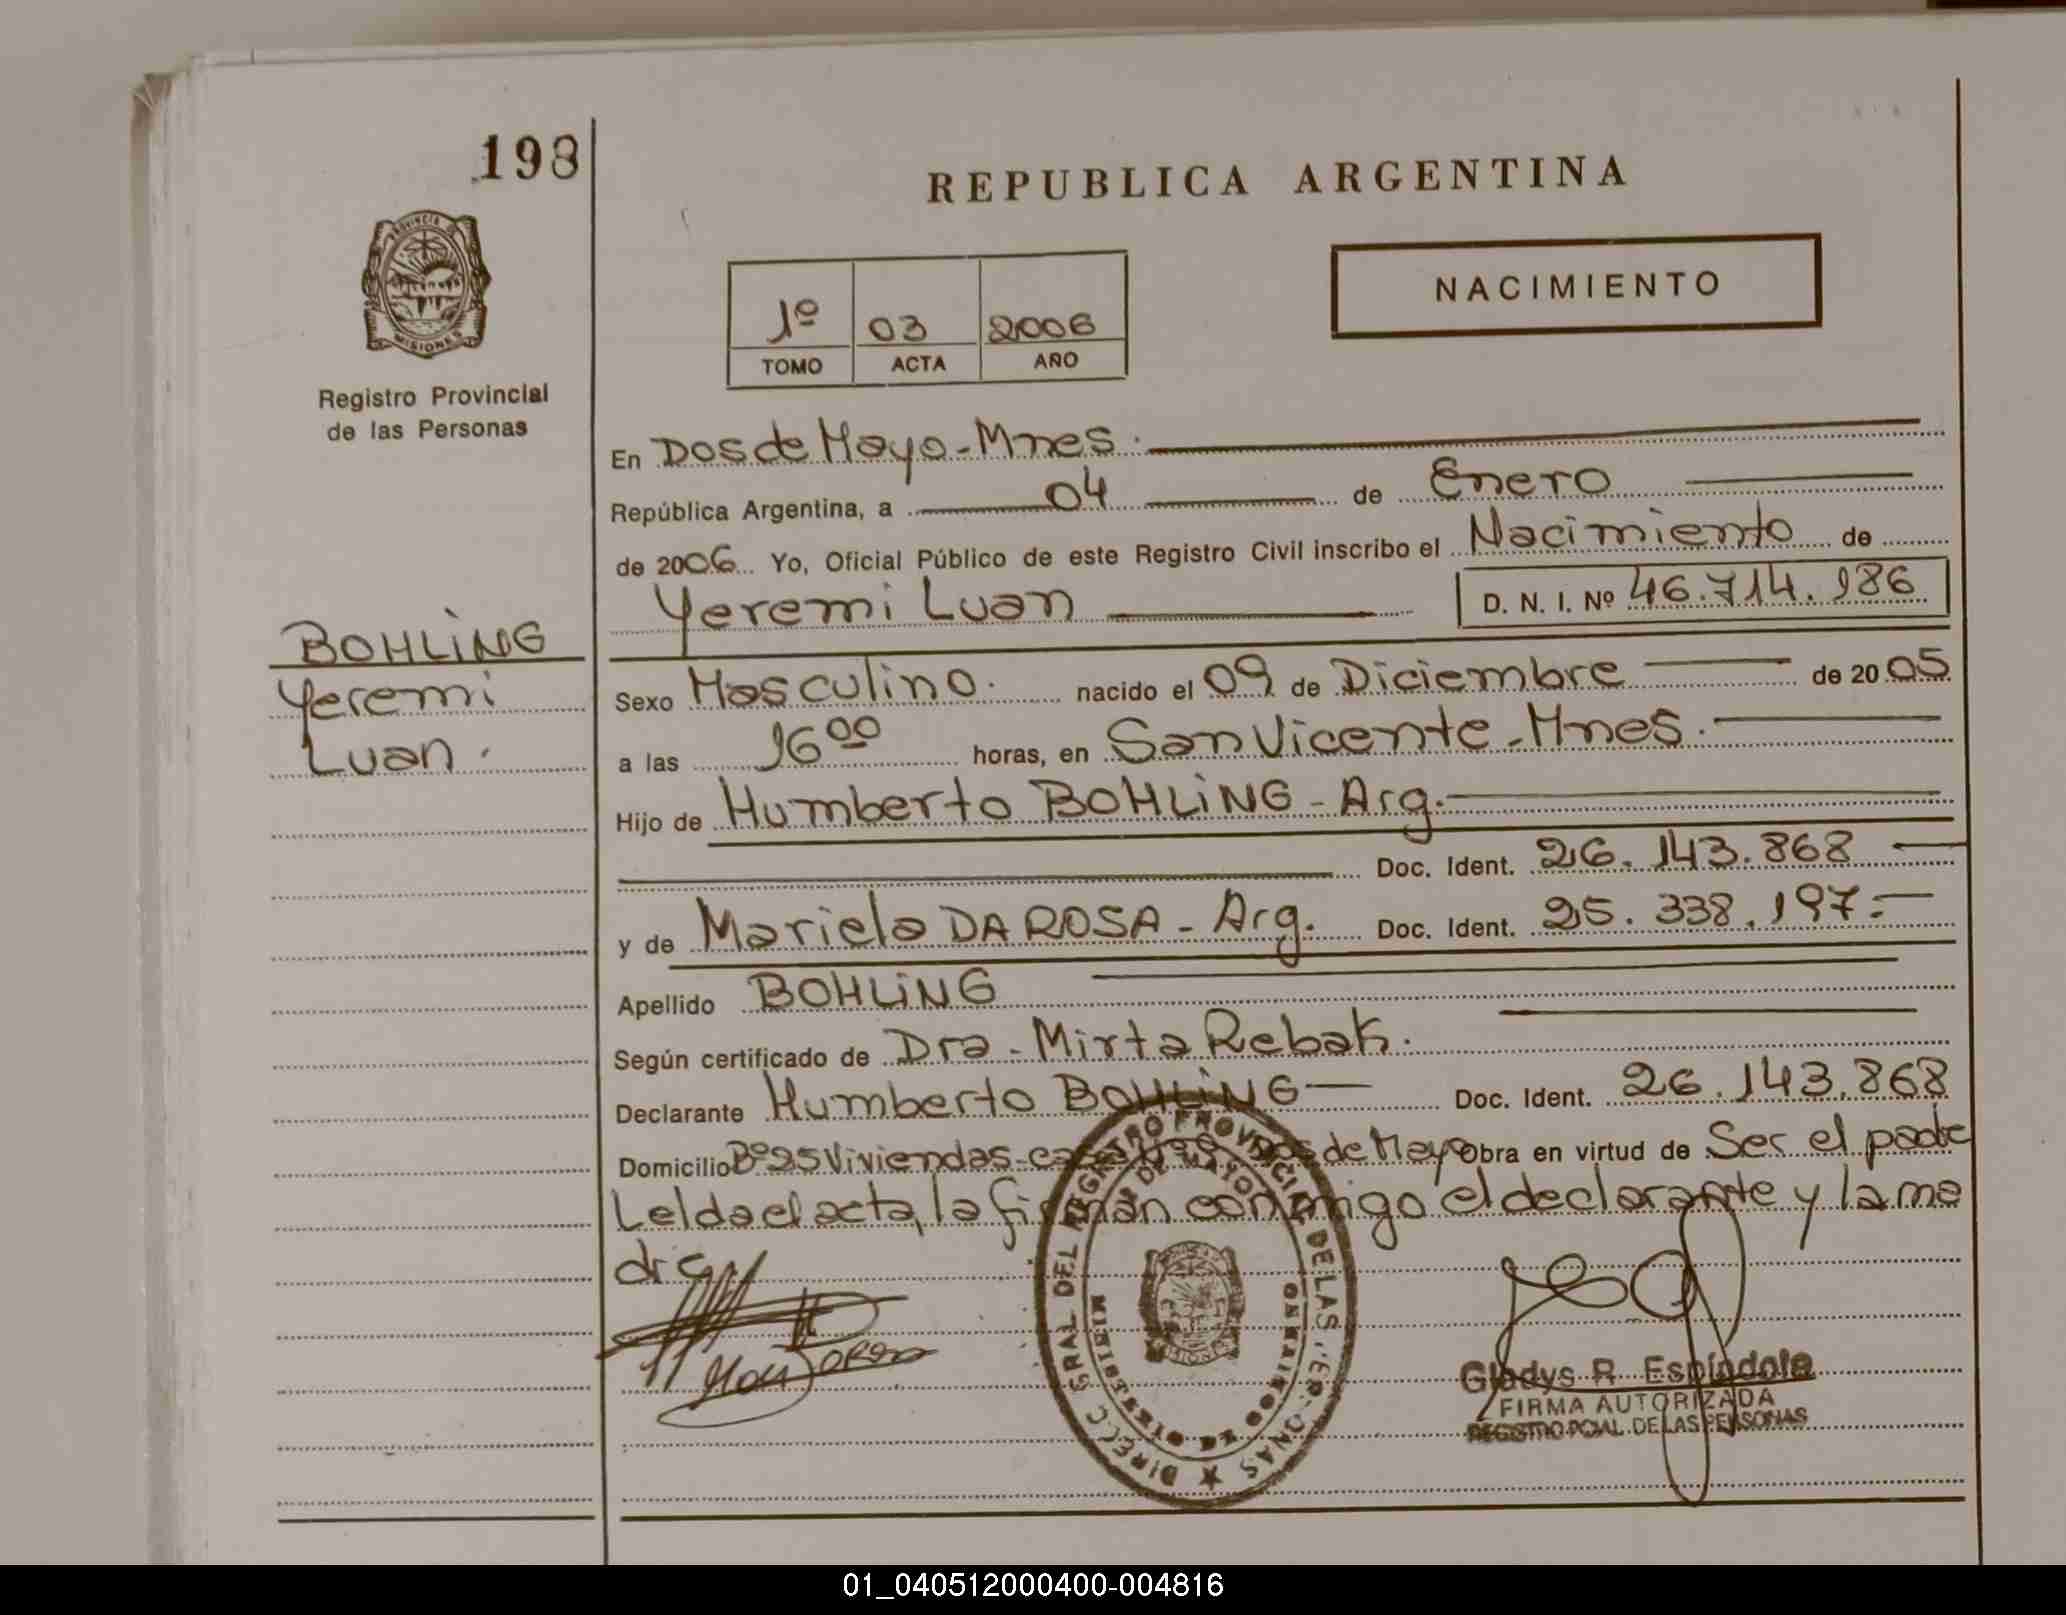 198
REPUBLICA ARGENTINA
PROVINCIA DE
MISIONES
NACIMIENTO
1º 03 2006
TOMO ACTA AÑO
Registro Provincial
de las Personas
En Dos de Mayo - Mnes.
República Argentina, a 04 de Enero
de 2006 Yo, Oficial Público de este Registro Civil inscribo el Nacimiento de
Yeremi Luan D. N. I. Nº 46.714.186
BOHLING
Yeremi
Luan.
Sexo Masculino. nacido el 09 de Diciembre de 2005
a las 16 00 horas, en San Vicente - Mnes.
Hijo de Humberto BOHLING - Arg.
Doc. Ident. 26.143.868
y de Mariela DA ROSA - Arg. Doc. Ident. 25.338.197.-
Apellido BOHLING
Según certificado de Dra. Mirta Rebak.
Declarante Humberto BOHLING Doc. Ident. 26.143.868
Domicilio Bº 25 Viviendas - Dos de Mayo Obra en virtud de Ser el padre
Leída el acta, la firman conmigo el declarante y la ma
dre
DIRECC. GRAL. DEL REGISTRO PROVINCIAL DE LAS PERSONAS
Gladys R. Espíndola
FIRMA AUTORIZADA
REGISTRO PCIAL. DE LAS PERSONAS
01_040512000400-004816